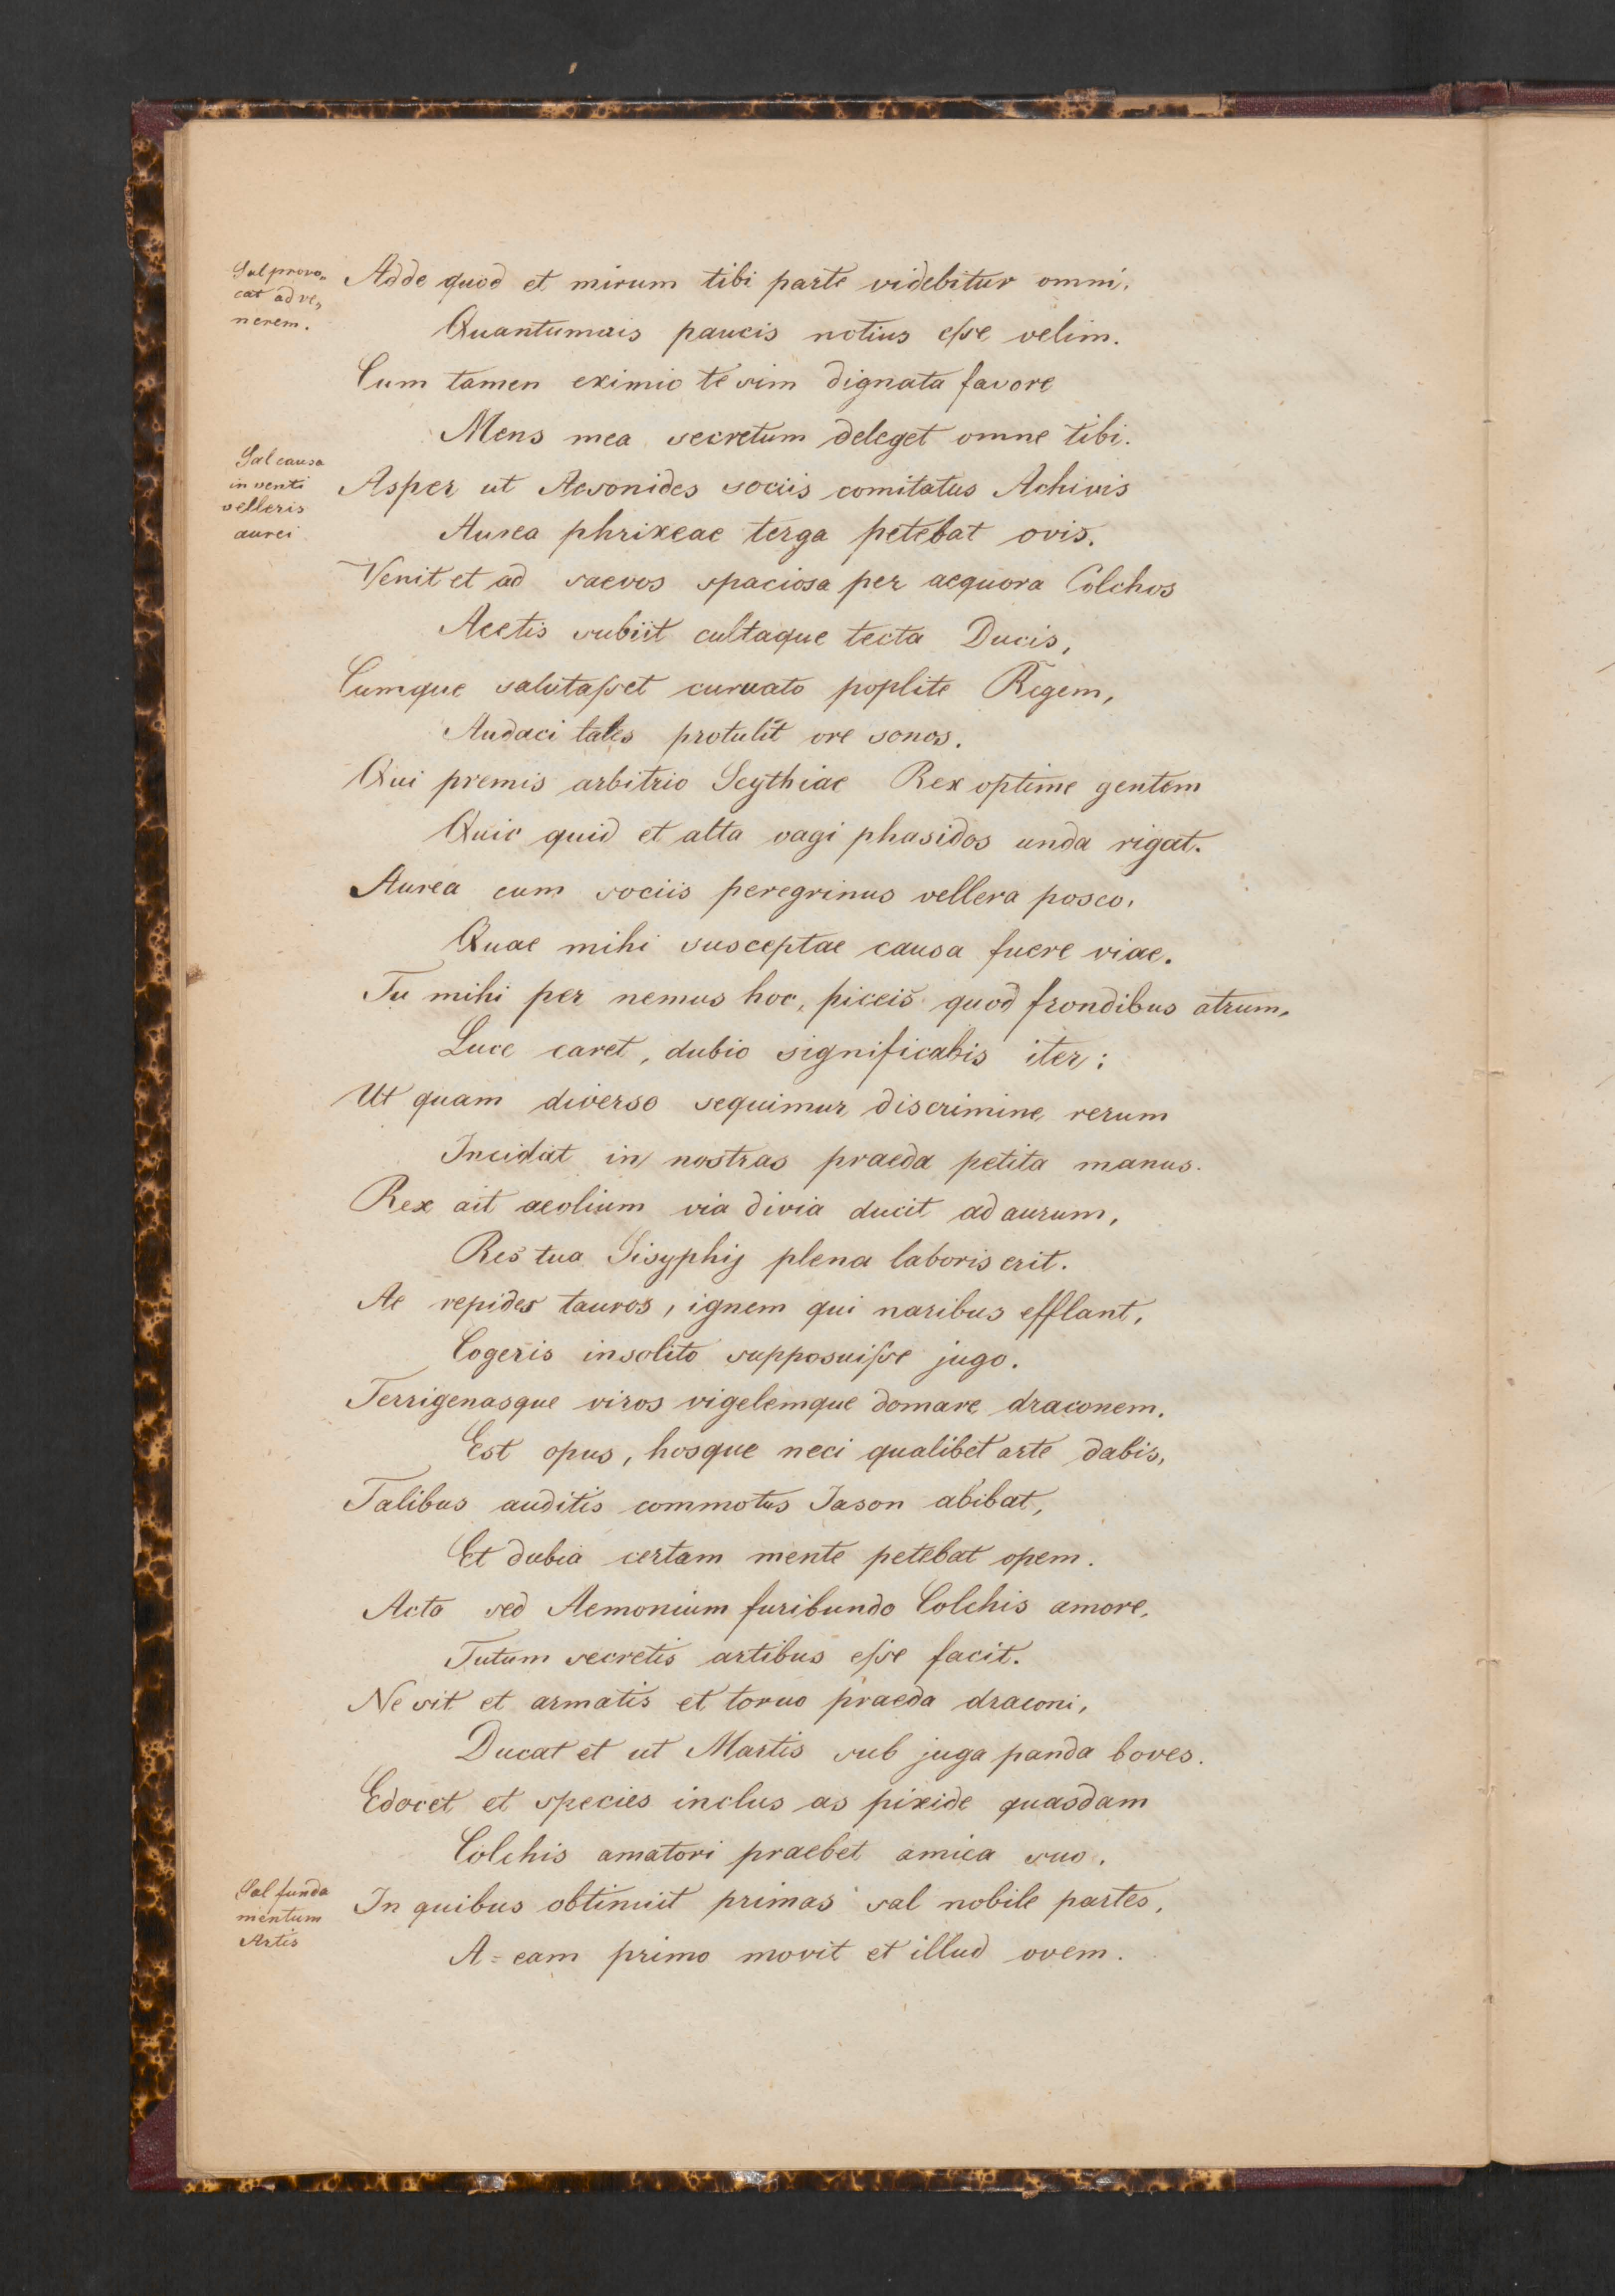 Sal provo„
cat ad ve„
nerem.
Adde quod et mirum tibi parte videbitur omni,
Quantumuis paucis notius esse velim.
Cum tamen eximio te sim dignata favore
Mens mea secretum deleget omne tibi.
Sal causa
inventi
velleris
aurei
Asper ut Aesonides sociis comitatus Achivis
Aurea phrixeae terga petebat ovis.
Venit et ad saevos spaciosa per aequora Colchos
Aeetis subiit cultaque tecta Ducis,
Cumque salutasset curuato poplite Regem,
Audaci tales protulit ore sonos.
Qui premis arbitrio Scythiae Rex optime gentem
Quic quid et alta vagi phasidos unda rigat.
Aurea cum sociis peregrinus vellera posco,
Quae mihi susceptae causa fuere viae.
Tu mihi per nemus hoc, piceis quod frondibus atrum,
Luce caret, dubio significabis iter:
Ut quam diverso sequimur discrimine rerum
Incidat in nostras praeda petita manus.
Rex ait aeolium via divia ducit ad aurum,
Res tua Sisyphij plena laboris erit.
Ae repides tauros, ignem qui naribus efflant,
Cogeris insolito supposuisse jugo.
Terrigenasque viros vigelemque domare draconem.
Est opus, hosque neci qualibet arte dabis,
Talibus auditis commotus Jason abibat,
Et dubia certam mente petebat opem.
Acta sed Aemonium furibundo Colchis amore,
Tutum secretis artibus esse facit.
Ne sit et armatis et toruo praeda draconi,
Ducat et ut Martis sub juga panda boves.
Edocet et species inclus as pixide quasdam
Colchis amatori praebet amica suo.
Sal funda
mentum
Artis
In quibus obtinuit primas sal nobile partes,
A=eam primo movit et illud ovem.